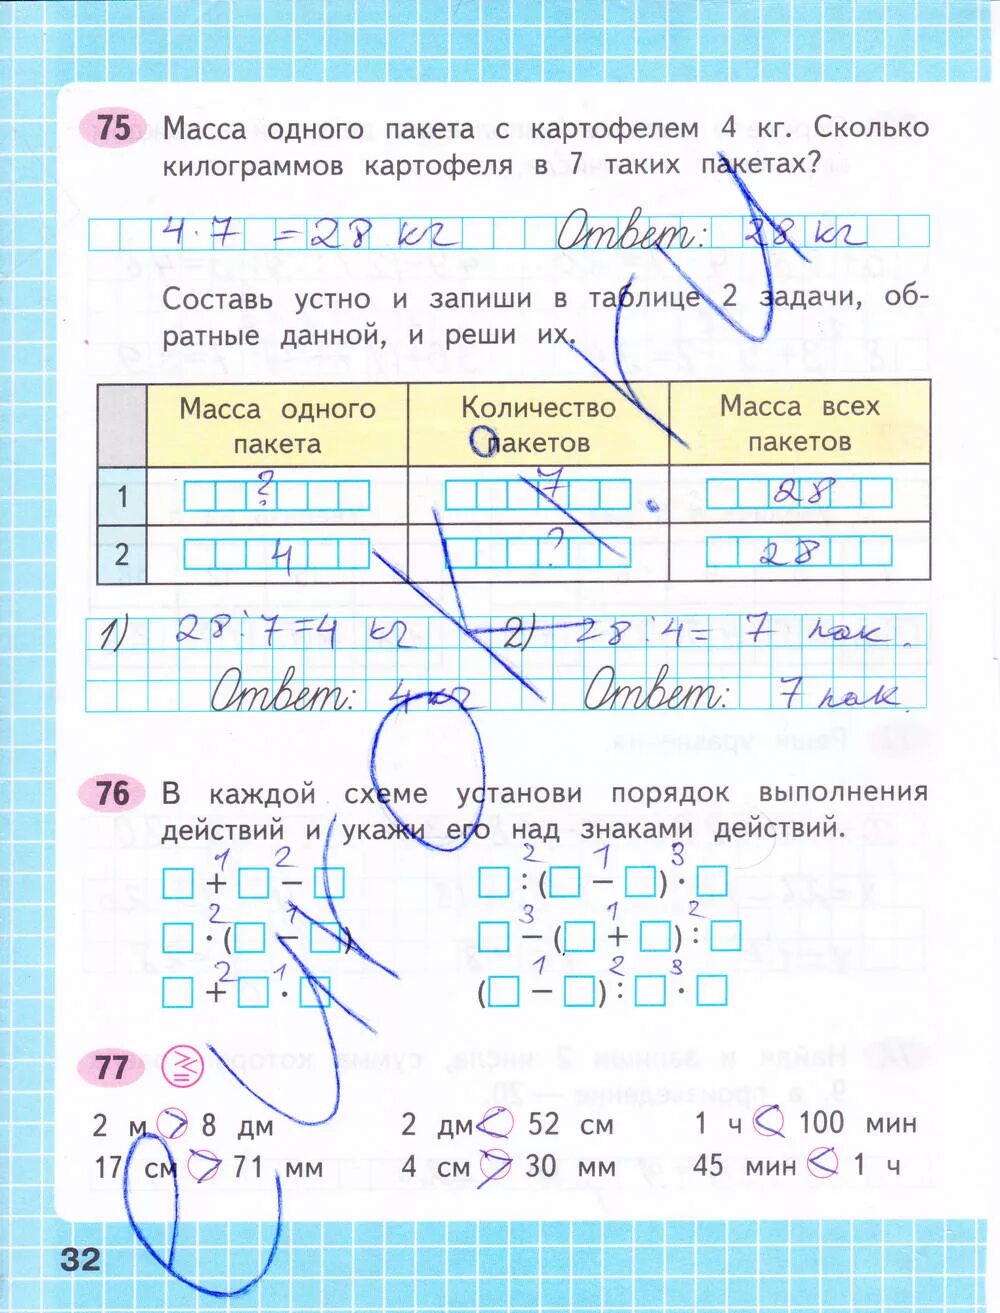 75 Масса одного пакета с картофелем 4 кг. Сколько
килограммов картофеля в 7 таких пакетах?
4 · 7 = 28 кг Ответ: 28 кг
Составь устно и запиши в таблице 2 задачи, об-
ратные данной, и реши их.
Масса одного пакета Количество пакетов Масса всех пакетов
1 ? 7 28
2 4 ? 28
1) 28 : 7 = 4 кг 2) 28 : 4 = 7 пак.
Ответ: 4 кг Ответ: 7 пак.
76 В каждой схеме установи порядок выполнения
действий и укажи его над знаками действий.
1 2 2 1 3
□ + □ − □ □ : (□ − □) · □
2 1 3 1 2
□ · (□ − □) □ − (□ + □) : □
2 1 1 2 3
□ + □ · □ (□ − □) : □ · □
77
2 м > 8 дм 2 дм < 52 см 1 ч < 100 мин
17 см > 71 мм 4 см > 30 мм 45 мин < 1 ч
32